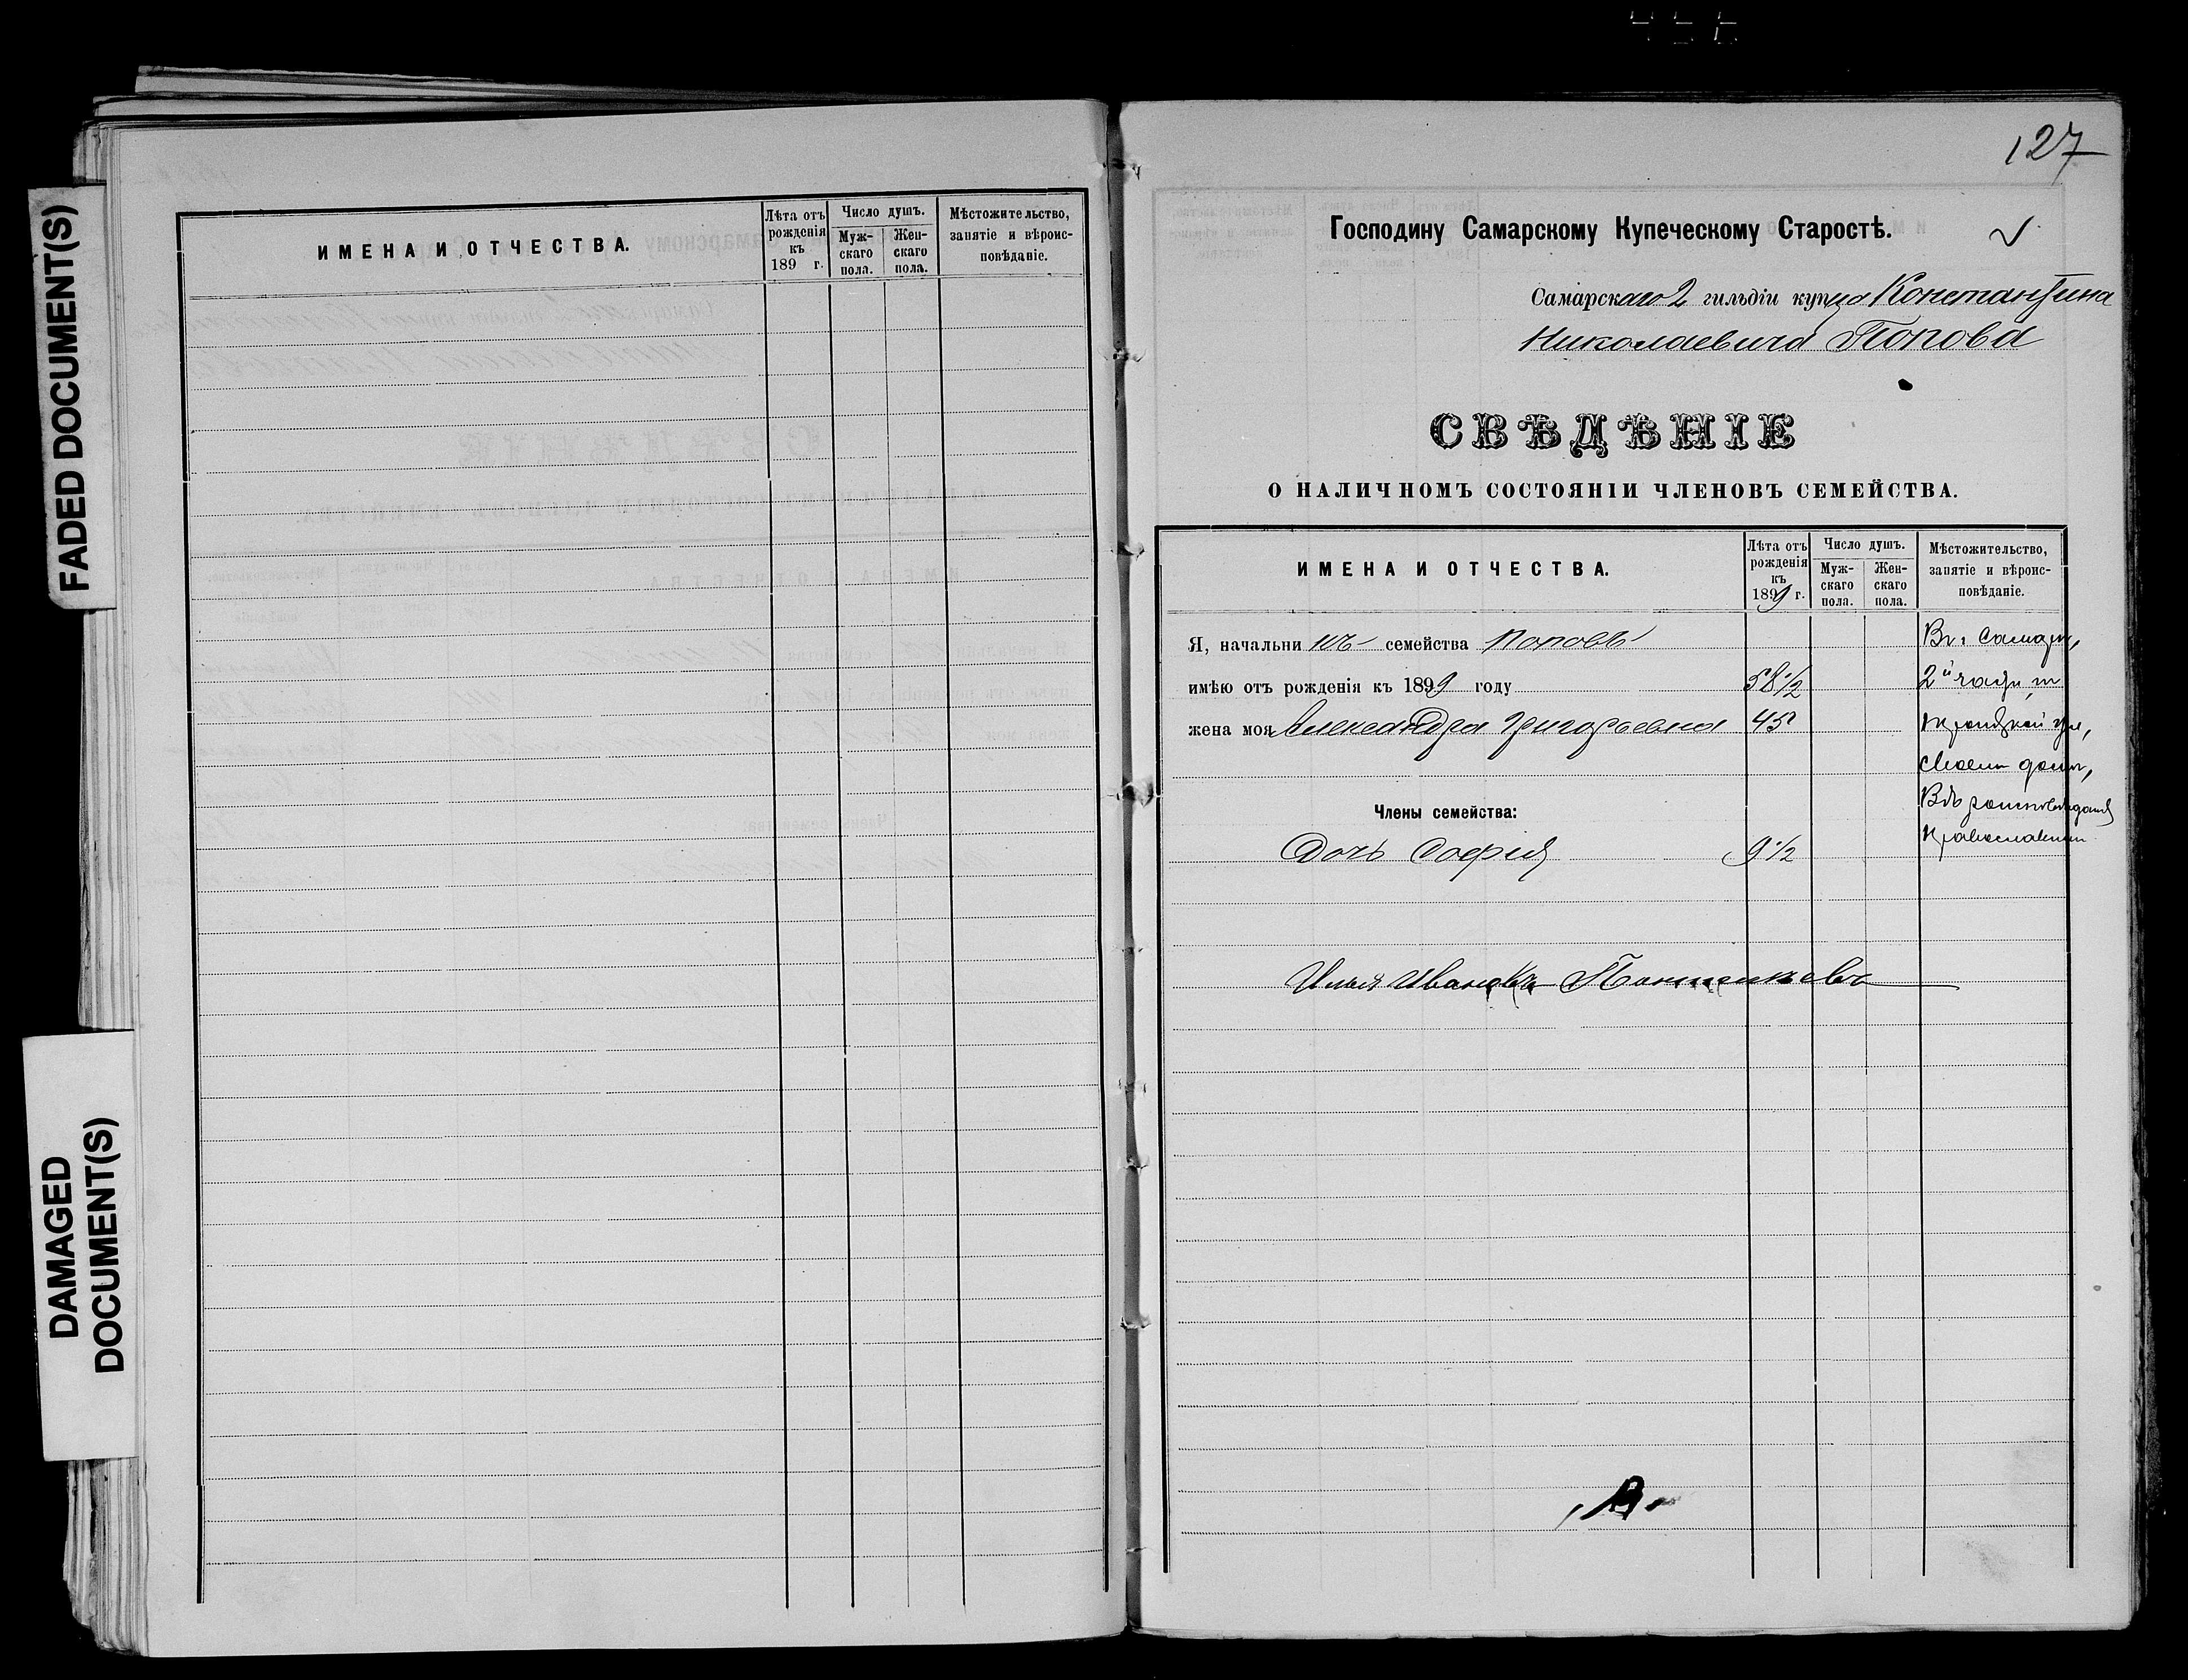 456
FADED DOCUMENT(S)
DAMAGED
DOCUMENT(S)
ИМЕНА И ОТЧЕСТВА.
Лѣта отъ рожденія къ 189 г.
Число душъ.
Мужскаго пола.
Женскаго пола.
Мѣстожительство,
занятіе и вѣроис-
повѣданіе.
127
Господину Самарскому Купеческому Старостѣ.
Самарскаго 2 гильдіи купца Константина
Николаевича Попова
СВѢДѢНІЕ
О НАЛИЧНОМЪ СОСТОЯНІИ ЧЛЕНОВЪ СЕМЕЙСТВА.
ИМЕНА И ОТЧЕСТВА.
Лѣта отъ рожденія къ 1899 г.
Число душъ.
Муж-скаго пола.
Жен-скаго пола.
Мѣстожительство,
занятіе и вѣроис-
повѣданіе.
Я, начальникъ семейства Поповъ
имѣю отъ рожденія къ 1899 году 58 1/2
жена моя Александра Григорьевна 45
Члены семейства:
Дочь Софія 9 1/2
В г. Самарѣ,
2й части, на
Троицкой ул,
своемъ домѣ,
Вѣроисповѣданія
Православнаго
Илья Ивановъ